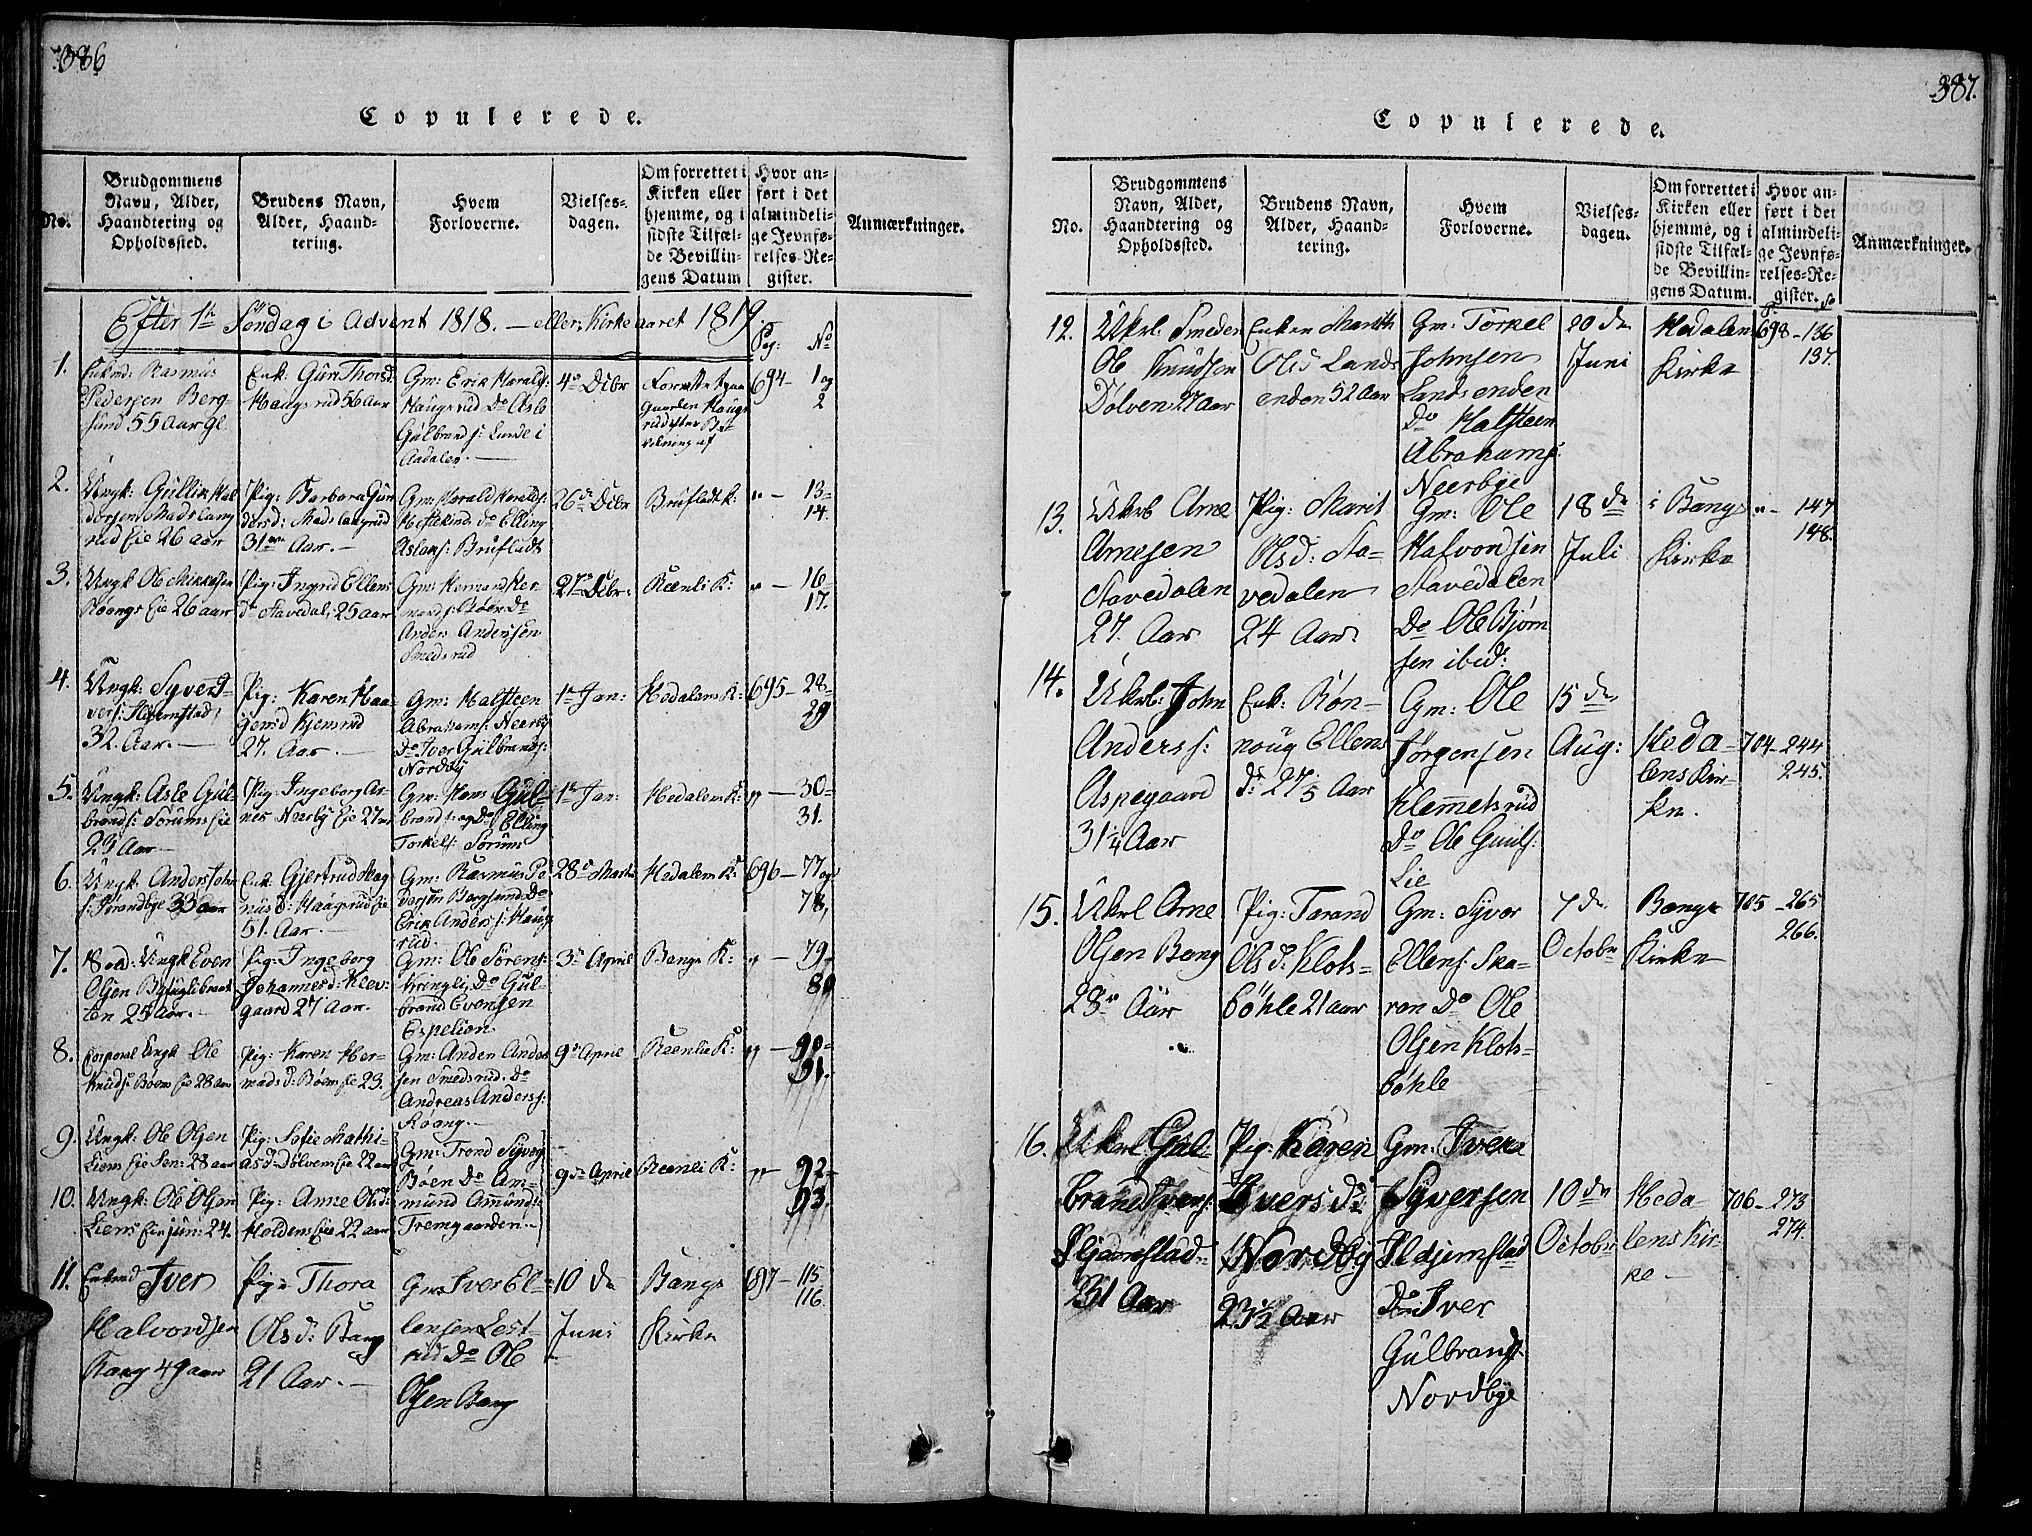 386
Copulerede.
No.
Brudgommens Navn, Alder, Haandtering og Opholdssted.
Brudens Navn, Alder, Haandtering.
Hvem Forloverne.
Vielsesdagen.
Om forrettet i Kirken eller hjemme, og i sidste Tilfælde Bevillingens Datum
Hvor anført i det almindelige Jevnførelses-Register.
Anmærkninger.
Efter 1te Søndag i Advent 1818. — eller Kirkeaaret 1819.
Pag: No
1.
Enkmd: Rasmus
Pedersen Berg-
sund 55 Aar gl
Enk: Gun Thorsd:
Haugsrud 56 Aar
Gm: Erik Harald:
Haugsrud Do Asle
Gulbrands: Lunde i
Aadalen. —
4de Debr
Forrettet paa
Gaarden Haugs
rud efter Be-
af
694 — 1 og
2
2.
Ungk: Gullik Hal
dorsen Madslang
rud Eie 26 aar
Pig: Barbora Gun
dersd: Madslangrud
31 Aar. —
Gm: Harald Harald:
Heftekind Do Elling
Aslaks: Brufladt
26de Debr
Brufladt K:
" — 13-
14.
3.
Ungk Ole Mikkelsen
Røangs Eie 26 aar
Pig: Ingrid Ellens
Dr Stavedal, 25 aar
Gm: Herman Her
mands: Bøen Do
Anders Anderssen
Smedsrud
27de Debr:
Reenli K:
" — 16-
17.
4.
Ungk: Syver I-
vers: Hiemstad,
32. Aar. —
Pig: Karen Haa-
gensd Kjensrud
27. Aar. —
Gm: Halsteen
Abrahams: Neerby
Do Iver Gulbrands:
Nordby
1te Jan:
Hedalens K:
695 — 28-
29
5.
Ungk: Asle Gul-
brands: Sørums Eie
29 Aar —
Pig: Ingeborg Ar-
nes Neerby Eie 27
Gm: Hans Gul-
brands: Do Elling
Torkels: Sørum
1te Jan:
Hedalens K:
" — 30-
31.
6.
Ungk. Anders John
s: Strandbye 33 aar
Enk: Gjertrud Mag
nus D: Haugsrud Eie
51. Aar. —
Gm: Rasmus Pe
dersen Bergsund Do
Erik Anders s: Haug
rud.
28de Martii
Hedalens K.
696 — 77 og
78,
7.
Sold: Ungk Even
Olsen Bøfuglibraat
ten 25 Aar. —
Pig: Ingeborg
Johannesd: Klev-
gaard 27 Aar.
Gm: Ole Sørens:
Kringli, Do Gul-
brand Evensen
Espelien
3de April
Bangs K:
" — 79-
80
8.
Corporal Ungk Ole
Knuds: Bøens Eie 28 aar
Pig: Karen Her-
mands D: Bøens Eie 23.
Gm: Anders Anders
sen Smedsrud. Do
Andreas Anders s:
Røang. —
9de April
Reenlie K:
" — 90-
91.
9.
Ungk: Ole Olsen
Liens Eie Sen: 28 aar
Pig: Sofie Mathi
asd: Dølvens Eie 22 aar
Gm: Trond Syver
Bøen Do Am-
mund Ammunds:
Tremgaarden. —
9de April
Reenli K:
" — 92-
93.
10.
Ungk: Ole Olsen
Liens Eie jun: 24.
Pig: Anne Olsd:
Holdens Eie 22 aar
11.
Enkmd Iver
Halvordsen
Bang 49 aar
Pig: Thora
Olsd: Bang
21 Aar. —
Gm: Iver El-
lensen Lest-
rud Do Ole
Olsen Bang
10 de
Juni
Bangs
Kirke
697 — 115
116.
387.
Copulerede.
No.
Brudgommens Navn, Alder, Haandtering og Opholdssted.
Brudens Navn, Alder, Haandtering.
Hvem Forloverne.
Vielsesdagen.
Om forrettet i Kirken eller hjemme, og i sidste Tilfælde Bevillingens Datum.
Hvor anført i det almindelige Jevnførelses-Register.
Anmærkninger.
12.
Ukrl Smeden
Ole Knudsen
Dølven 27 aar
Enken Marith
Olsd Lands
enden 52 Aar
Gm: Torkel
Johnsen
Landsenden
Do Halsteen
Abrahams:
Neerbye
20 de
Juni
Hedalens
Kirke
698 — 136
137.
13.
Ukrl Arne
Arnesen
Stavedalen
27. Aar
Pig: Marit
Olsd: Sta-
vedalen
24 Aar.
Gm: Ole
Halvordsen
Stavedalen
Do Ole Bjørn
sen ibid:
18 de
Juli
i Bangs
Kirke
" — 147
148.
14.
Ukrl: John
Anderss:
Aspegaard
31 1/4 Aar
Enk: Røn-
noug Ellens
D: 27 Aar
Gm: Ole
Jørgensen
Klemmetsrud
Do Ole Guuls:
Lie
15 de
Aug:
Heda-
lens Kir-
ke.
704 — 244
245.
15.
Ukrl Arne
Olsen Bang
28 Aar
Pig: Tarand
Ols D: Klots-
bøhle 21 aar
Gm: Syver
Ellens: Ska-
ren Do Ole
Olsen Klots-
bøhle
7 de
Octobr
Bangs
Kirke
705 — 265
266.
16.
Ukrl Gul-
brand Ivers:
Hjemstad
31 Aar
Pig: Karen
Ivers D:
Nordby
23 1/2 Aar
Gm: Ivera
Syversen
Hidjemstad
Do Iver
Gulbrands:
Nordbye
10 de
Octobr
Heda-
lens Kir-
ke —
706 — 273
274.